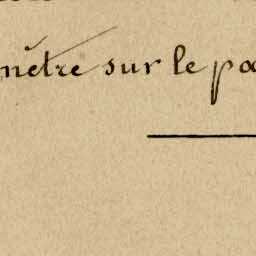 mètre sur le pa